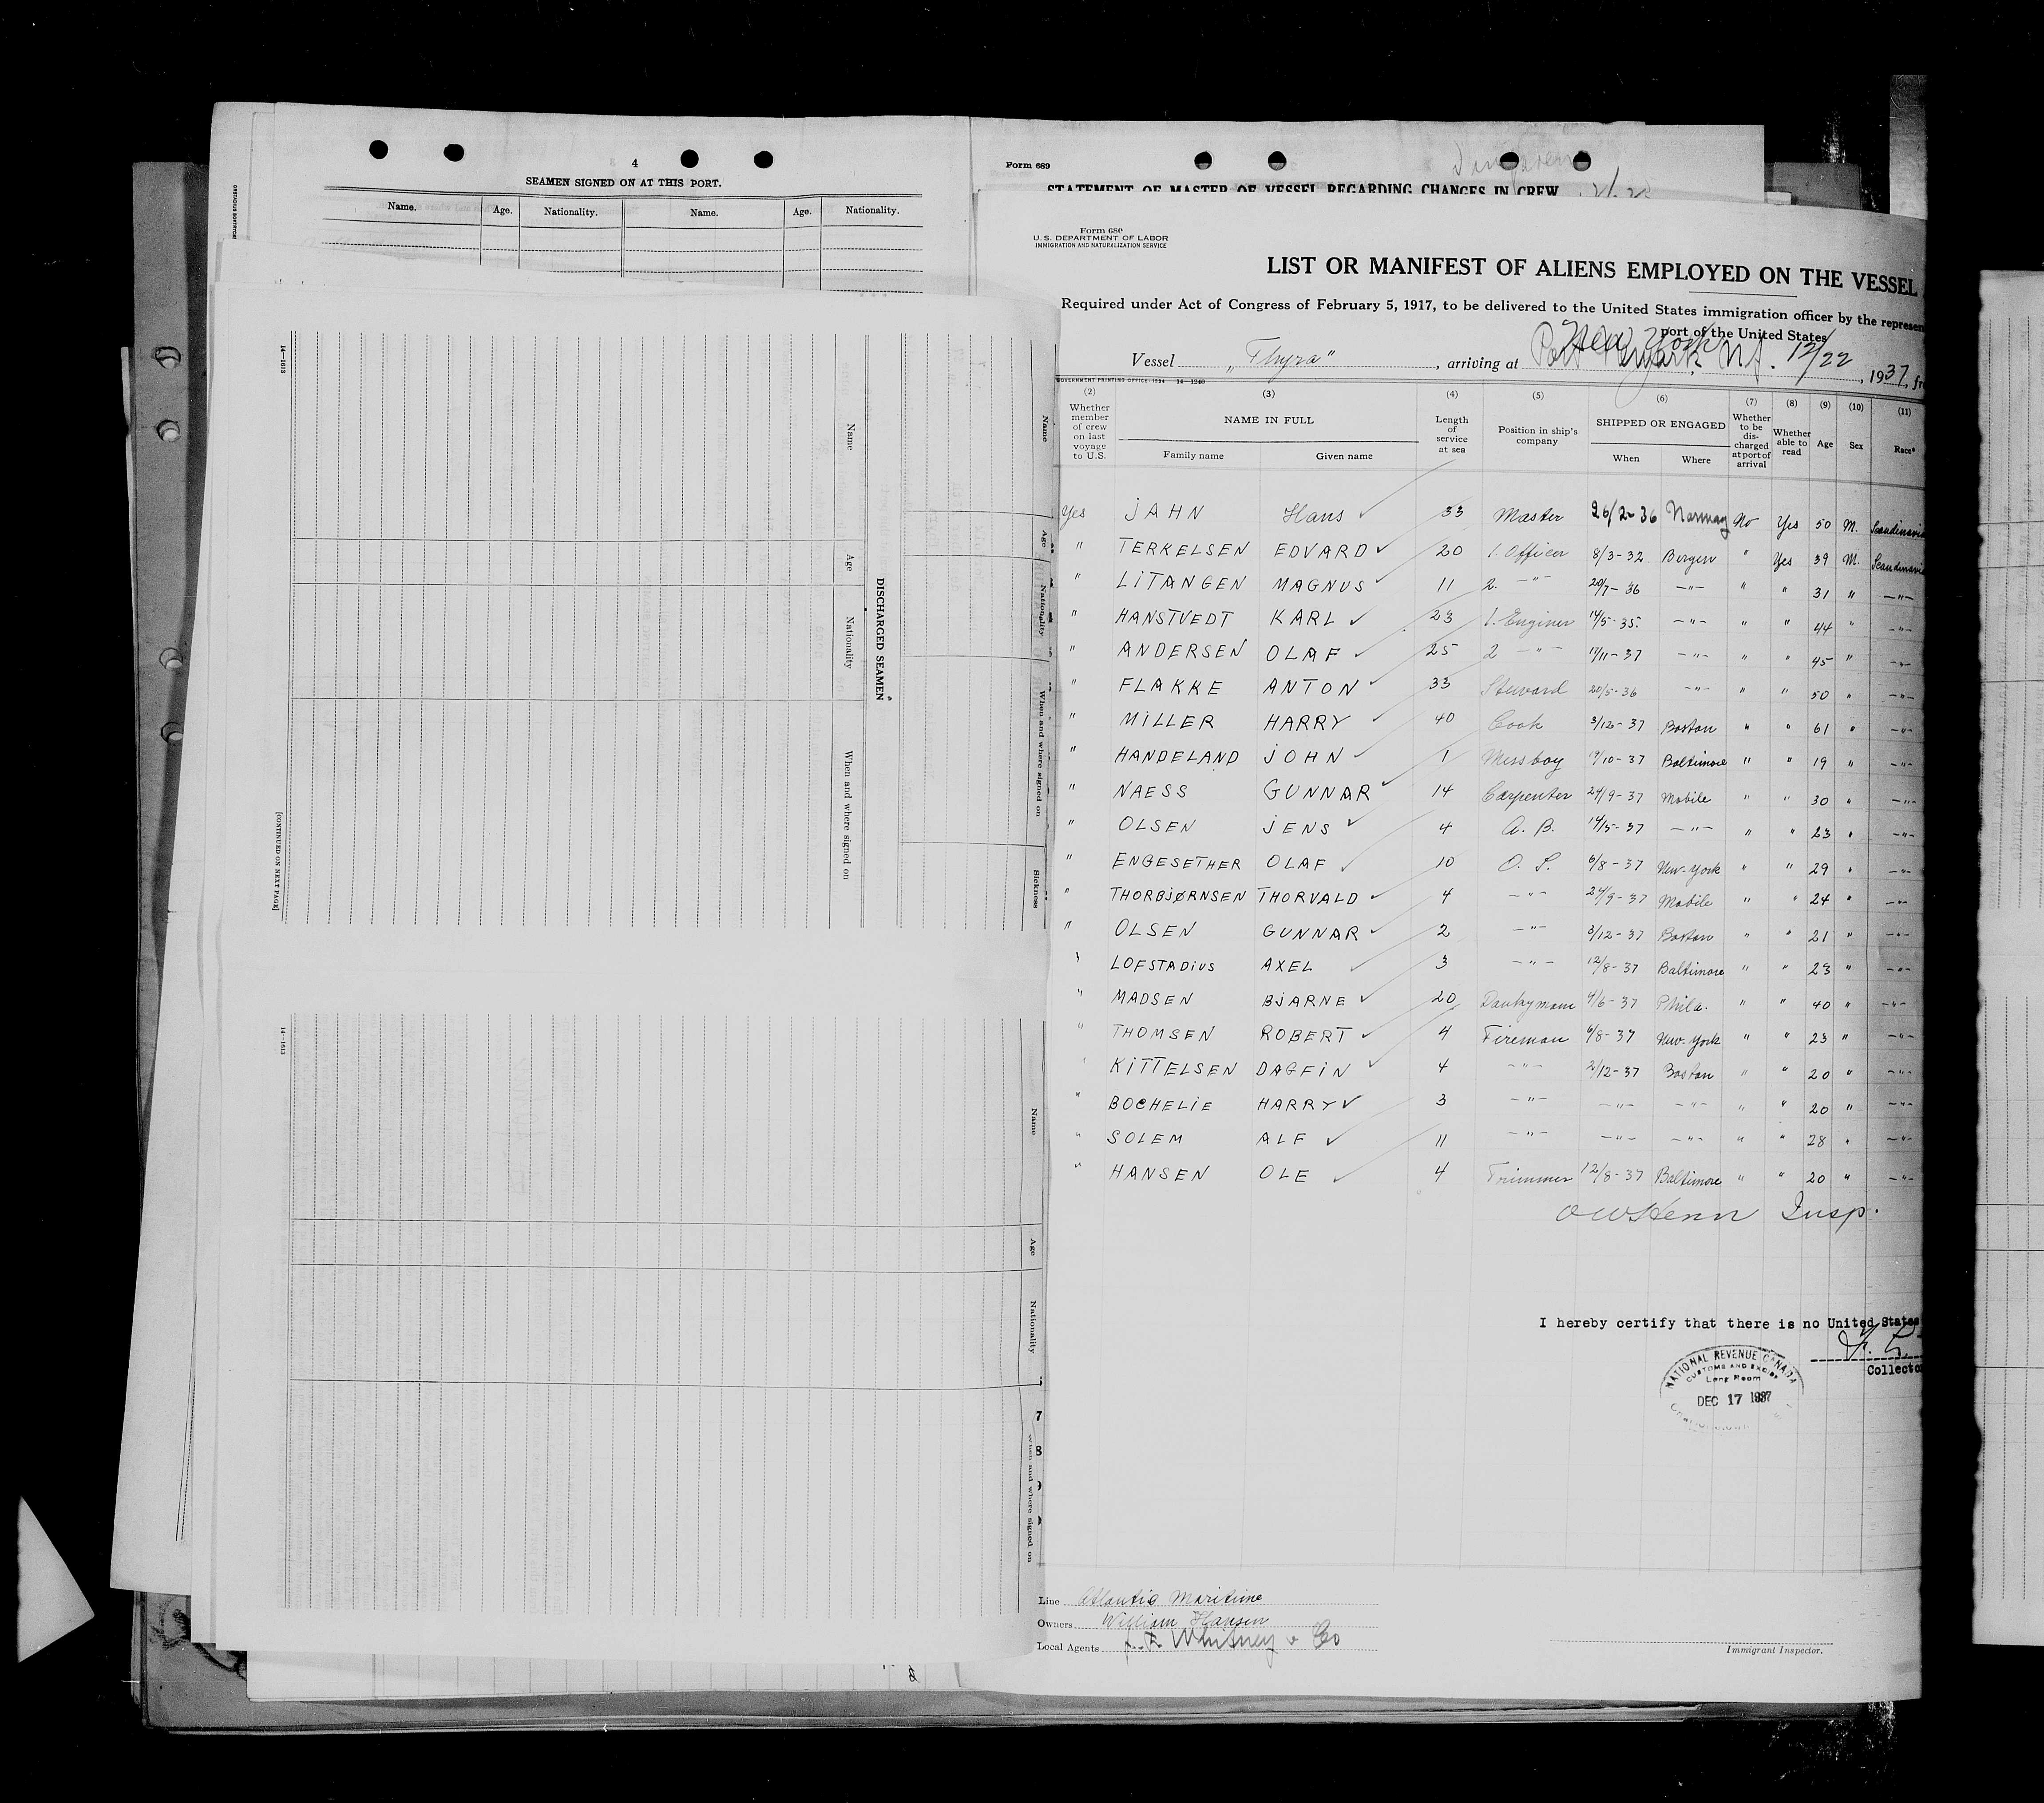 4
SEAMEN SIGNED ON AT THIS PORT.
Name. Age. Nationality. Name. Age. Nationality.
14—1613
Name Age Nationality When and where signed on
DISCHARGED SEAMEN
Name Age Nationality When and where signed on Sickness
[CONTINUED ON NEXT PAGE]
14—1613
Name Age Nationality When and where signed on
7
8
Form 689
STATEMENT OF MASTER OF VESSEL REGARDING CHANGES IN CREW
Form 680
U. S. DEPARTMENT OF LABOR
IMMIGRATION AND NATURALIZATION SERVICE
LIST OR MANIFEST OF ALIENS EMPLOYED ON THE VESSEL
Required under Act of Congress of February 5, 1917, to be delivered to the United States immigration officer by the represen
port of the United States
Vessel „Thyra", arriving at New York Port Newark, N.J. 12/22, 1937, fr
GOVERNMENT PRINTING OFFICE: 1934 14—1240
(2) (3) (4) (5) (6) (7) (8) (9) (10) (11)
Whether member of crew on last voyage to U.S. NAME IN FULL Family name Given name Length of service at sea Position in ship's company SHIPPED OR ENGAGED When Where Whether to be discharged at port of arrival Whether able to read Age Sex Race*
Yes JAHN Hans ✓ 33 Master 26/2-36 Norway No Yes 50 M. Scandinavia
" TERKELSEN EDVARD ✓ 20 1. Officer 8/3-32 Bergen " Yes 39 M. Scandinavia
" LITANGEN MAGNUS ✓ 11 2. —"— 20/7-36 —"— " " 31 " —"—
" HANSTVEDT KARL ✓ 23 1. Enginer 14/5-35. —"— " " 44 " —"—
" ANDERSEN OLAF ✓ 25 2 —"— 11/11-37 —"— " " 45 " —"—
" FLAKKE ANTON ✓ 33 Steward 20/5-36 —"— " " 50 " —"—
" MILLER HARRY ✓ 40 Cook 3/12-37 Boston " " 61 " —"—
" HANDELAND JOHN ✓ 1 Messboy 19/10-37 Baltimore " " 19 " —"—
" NAESS GUNNAR ✓ 14 Carpenter 24/9-37 Mobile " " 30 " —"—
" OLSEN JENS ✓ 4 A. B. 14/5-37 —"— " " 23 " —"—
" ENGESETHER OLAF ✓ 10 O. S. 6/8-37 New-York " " 29 " —"—
" THORBJØRNSEN THORVALD ✓ 4 —"— 24/9-37 Mobile " " 24 " —"—
" OLSEN GUNNAR ✓ 2 —"— 3/12-37 Boston " " 21 " —"—
" LOFSTADIUS AXEL ✓ 3 —"— 12/8-37 Baltimore " " 23 " —"—
" MADSEN BJARNE ✓ 20 Donkeymann 4/6-37 Phila. " " 40 " —"—
" THOMSEN ROBERT ✓ 4 Fireman 6/8-37 New-York " " 23 " —"—
" KITTELSEN DAGFIN ✓ 4 —"— 2/12-37 Boston " " 20 " —"—
" BOCHELIE HARRY ✓ 3 —"— —"— —"— " " 20 " —"—
" SOLEM ALF ✓ 11 —"— —"— —"— " " 28 " —"—
" HANSEN OLE ✓ 4 Trimmer 12/8-37 Baltimore " " 20 " —"—
OWHenn Insp.
I hereby certify that there is no United States
Collecto
NATIONAL REVENUE CANADA
CUSTOMS AND EXCISE
Long Room
DEC 17 1937
Line Atlantic Maritime
Owners William Hansen
Local Agents J. F. Whitney & Co
Immigrant Inspector.